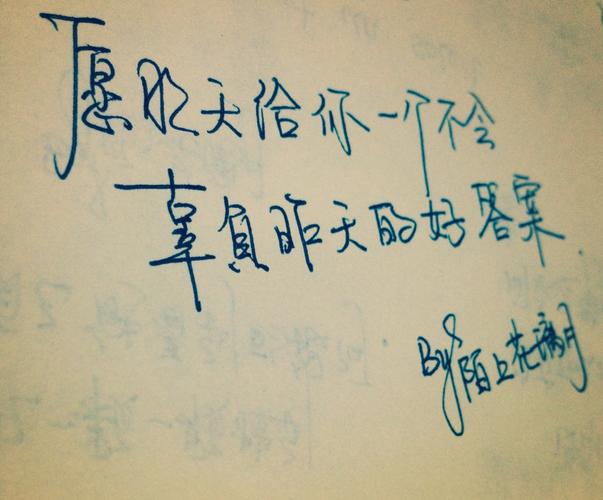 愿明天给你一个不会
辜负昨天的好答案.
By陌上花满月